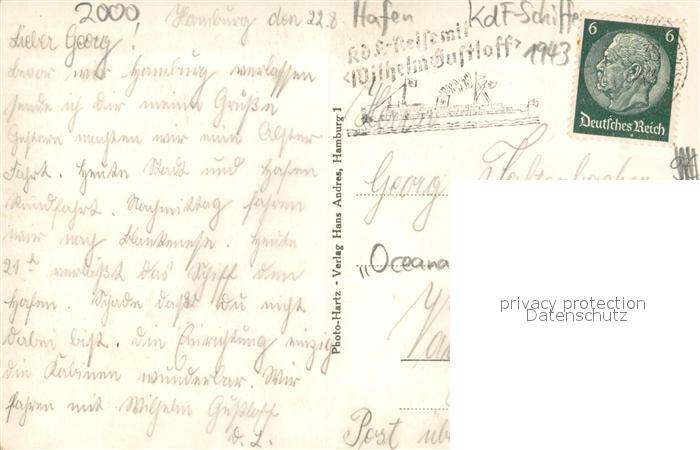 2000 Hamburg den 22.8. Hafen KdF-Schiffe
1943
Lieber Georg!
Bevor wir Hamburg verlassen
sende ich dir meine Grüße
Gestern machten wir eine Alster
Fahrt. Heute Stadt und Hafen
Rundfahrt. Nachmittag fahren
wir nach Blankenese. Heute
21 h verläßt das Schiff den
Hafen. Schade daß du nicht
dabei bist. Die Einrichtung einzig
die Kabinen wunderbar. Wir
fahren mit Wilhelm Gustloff
d. L.
Photo-Hartz - Verlag Hans Andres, Hamburg 1
KdF-Reise mit
"Wilhelm Gustloff"
6 6
Deutsches Reich
Georg
"Oceana
Post
privacy protection
Datenschutz